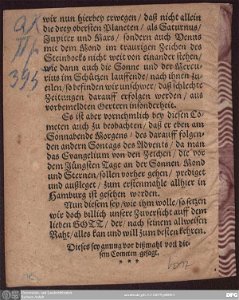 wir nun hierbey erwegen / daß nicht allein
die drey obersten Planeten / als Saturnus /
Jupiter und Mars / sondern auch Venus
mit dem Mond im traurigen Zeichen des
Steinbocks nicht weit von einander stehen /
wie dann auch die Sonne und der Mercu-
rius im Schützen lauffende / nach ihnen zu-
eilen / so befinden wir unschwer / daß schlechte
Zeitungen darauff erfolgen werden / aus
vorbemeldten Oertern insonderheit.
Es ist aber vornehmlich bey diesen Co-
meten auch zu beobachten / daß er eben am
Sonnabende Morgens / des darauff folgen-
den andern Sontags des Advents / da man
das Evangelium von den Zeichen / die vor
dem Jüngsten Tage an der Sonnen / Mond
und Sternen / sollen vorher gehen / prediget
und außleget / zum erstenmahle allhier in
Hamburg ist gesehen worden.
Nun diesem sey / wie ihm wolle / so setzen
wir doch billich unsere Zuversicht auff dem
lieben GOTT / der / nach seinem allweisen
Raht / alles kan und will zum besten kehren.
Dieses sey genug vor dißmahl von die-
sem Cometen gesagt.
* * *